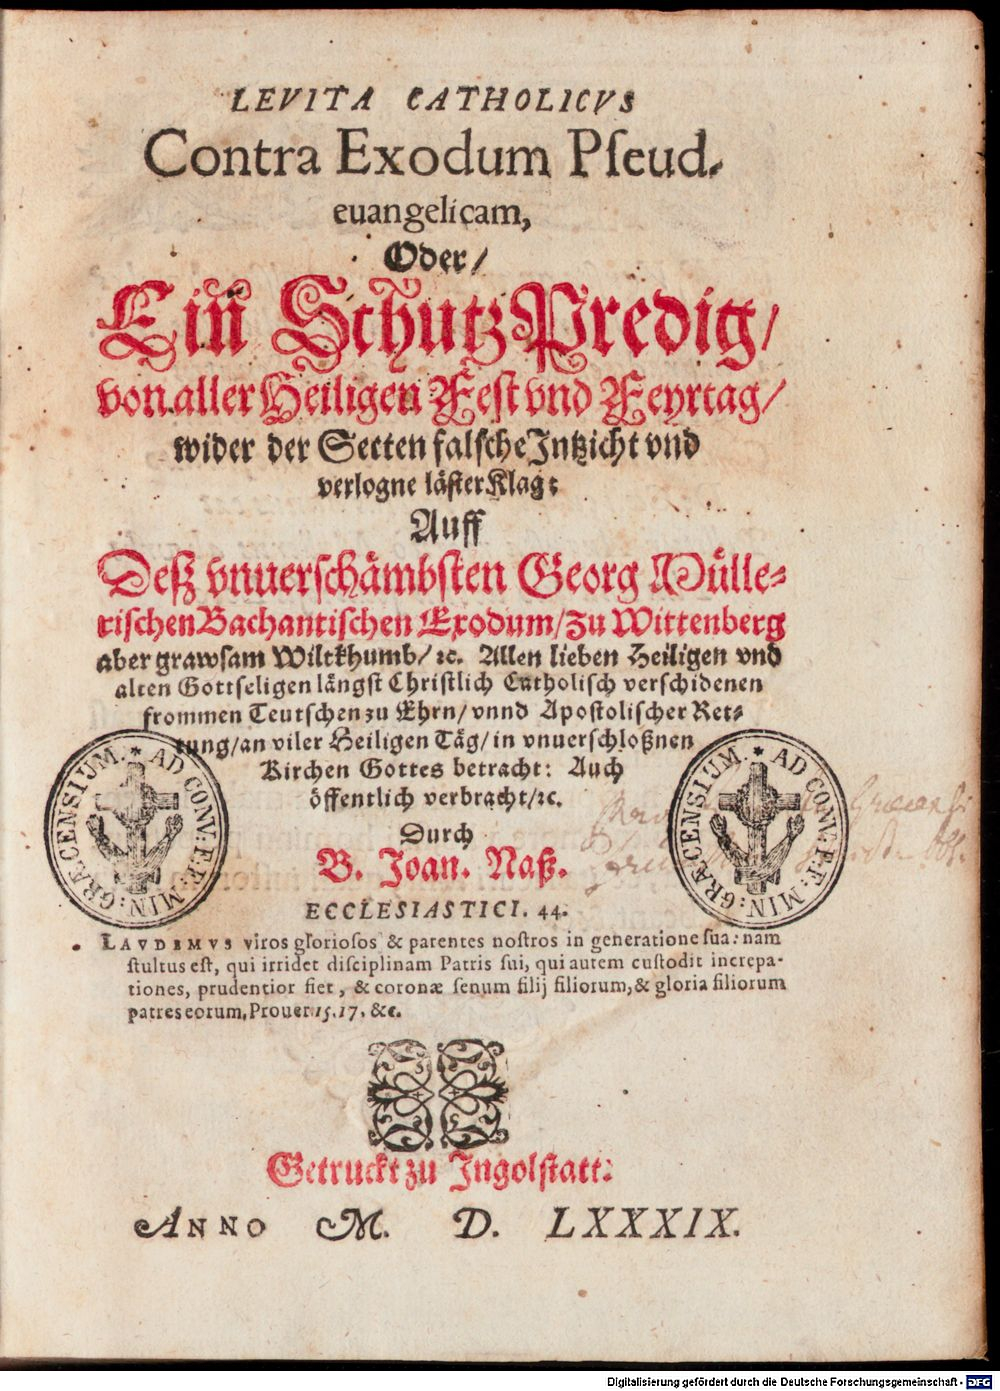 LEVITA CATHOLICVS
Contra Exodum Pſeud-
euangelicam,
Oder/
Ein SchutzPredig/
von aller Heiligen Feſt vnd Feyrtag/
wider der Secten falſche Intzicht vnd
verlogne läſter Klag:
Auff
Deß vnuerſchämbſten Georg Mülle-
riſchen Bachantiſchen Exodum/ Zu Wittenberg
aber grawſam Wilckhumb/ ꝛc. Allen lieben Heiligen vnd
alten Gottſeligen längſt Chriſtlich Catholiſch verſchidenen
frommen Teutſchen zu Ehrn/ vnnd Apoſtoliſcher Ret-
tung/ an viler Heiligen Täg/ in vnuerſchloßnen
Kirchen Gottes betracht: Auch
öffentlich verbracht/ ꝛc.
Durch
B. Joan. Naß.
ECCLESIASTICI. 44.
LAVDEMVS viros glorioſos & parentes noſtros in generatione ſua: nam
ſtultus eſt, qui irridet diſciplinam Patris ſui, qui autem cuſtodit increpa-
tiones, prudentior fiet, & coronæ ſenum filij filiorum, & gloria filiorum
patres eorum, Prouer. 15. 17. &c.
Getruckt zu Ingolſtatt:
ANNO M. D. LXXXIX.
AD CONV: F.F: MIN: GRÆCENSIUM.
AD CONV: F.F: MIN: GRÆCENSIUM.
Digitalisierung gefördert durch die Deutsche Forschungsgemeinschaft - DFG